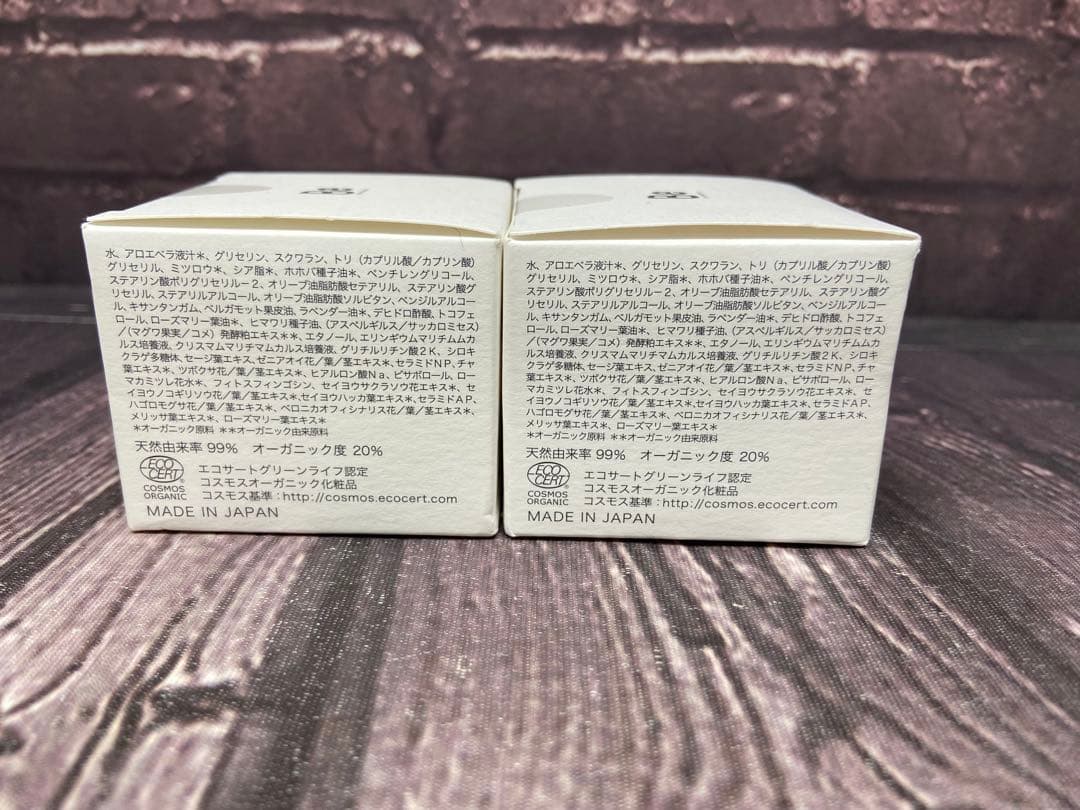 水、アロエベラ液汁＊、グリセリン、スクワラン、トリ（カプリル酸／カプリン酸）
グリセリル、ミツロウ＊、シア脂＊、ホホバ種子油＊、ペンチレングリコール、
ステアリン酸ポリグリセリル－2、オリーブ油脂肪酸セテアリル、ステアリン酸グ
リセリル、ステアリルアルコール、オリーブ油脂肪酸ソルビタン、ベンジルアルコー
ル、キサンタンガム、ベルガモット果皮油、ラベンダー油＊、デヒドロ酢酸、トコフェ
ロール、ローズマリー葉油＊、ヒマワリ種子油、（アスペルギルス／サッカロミセス）
／（マグワ果実／コメ）発酵粕エキス＊＊、エタノール、エリンギウムマリチムムカ
ルス培養液、クリスマムマリチマムカルス培養液、グリチルリチン酸2K、シロキ
クラゲ多糖体、セージ葉エキス、ゼニアオイ花／葉／茎エキス＊、セラミドNP、チャ
葉エキス＊、ツボクサ花／葉／茎エキス＊、ヒアルロン酸Na、ビサボロール、ロー
マカミツレ花水＊、フィトスフィンゴシン、セイヨウサクラソウ花エキス＊、セ
イヨウノコギリソウ花／葉／茎エキス＊、セイヨウハッカ葉エキス＊、セラミドAP、
ハゴロモグサ花／葉／茎エキス＊、ベロニカオフィシナリス花／葉／茎エキス＊、
メリッサ葉エキス＊、ローズマリー葉エキス＊
＊オーガニック原料 ＊＊オーガニック由来原料
天然由来率 99% オーガニック度 20%
ECO CERT
COSMOS
ORGANIC
エコサートグリーンライフ認定
コスモスオーガニック化粧品
コスモス基準：http://cosmos.ecocert.com
MADE IN JAPAN
水、アロエベラ液汁＊、グリセリン、スクワラン、トリ（カプリル酸／カプリン酸）
グリセリル、ミツロウ＊、シア脂＊、ホホバ種子油＊、ペンチレングリコール、
ステアリン酸ポリグリセリル－2、オリーブ油脂肪酸セテアリル、ステアリン酸グ
リセリル、ステアリルアルコール、オリーブ油脂肪酸ソルビタン、ベンジルアルコー
ル、キサンタンガム、ベルガモット果皮油、ラベンダー油＊、デヒドロ酢酸、トコフェ
ロール、ローズマリー葉油＊、ヒマワリ種子油、（アスペルギルス／サッカロミセス）
／（マグワ果実／コメ）発酵粕エキス＊＊、エタノール、エリンギウムマリチムムカ
ルス培養液、クリスマムマリチマムカルス培養液、グリチルリチン酸2K、シロキ
クラゲ多糖体、セージ葉エキス、ゼニアオイ花／葉／茎エキス＊、セラミドNP、チャ
葉エキス＊、ツボクサ花／葉／茎エキス＊、ヒアルロン酸Na、ビサボロール、ロー
マカミツレ花水＊、フィトスフィンゴシン、セイヨウサクラソウ花エキス＊、セ
イヨウノコギリソウ花／葉／茎エキス＊、セイヨウハッカ葉エキス＊、セラミドAP、
ハゴロモグサ花／葉／茎エキス＊、ベロニカオフィシナリス花／葉／茎エキス＊、
メリッサ葉エキス＊、ローズマリー葉エキス＊
＊オーガニック原料 ＊＊オーガニック由来原料
天然由来率 99% オーガニック度 20%
ECO CERT
COSMOS
ORGANIC
エコサートグリーンライフ認定
コスモスオーガニック化粧品
コスモス基準：http://cosmos.ecocert.com
MADE IN JAPAN